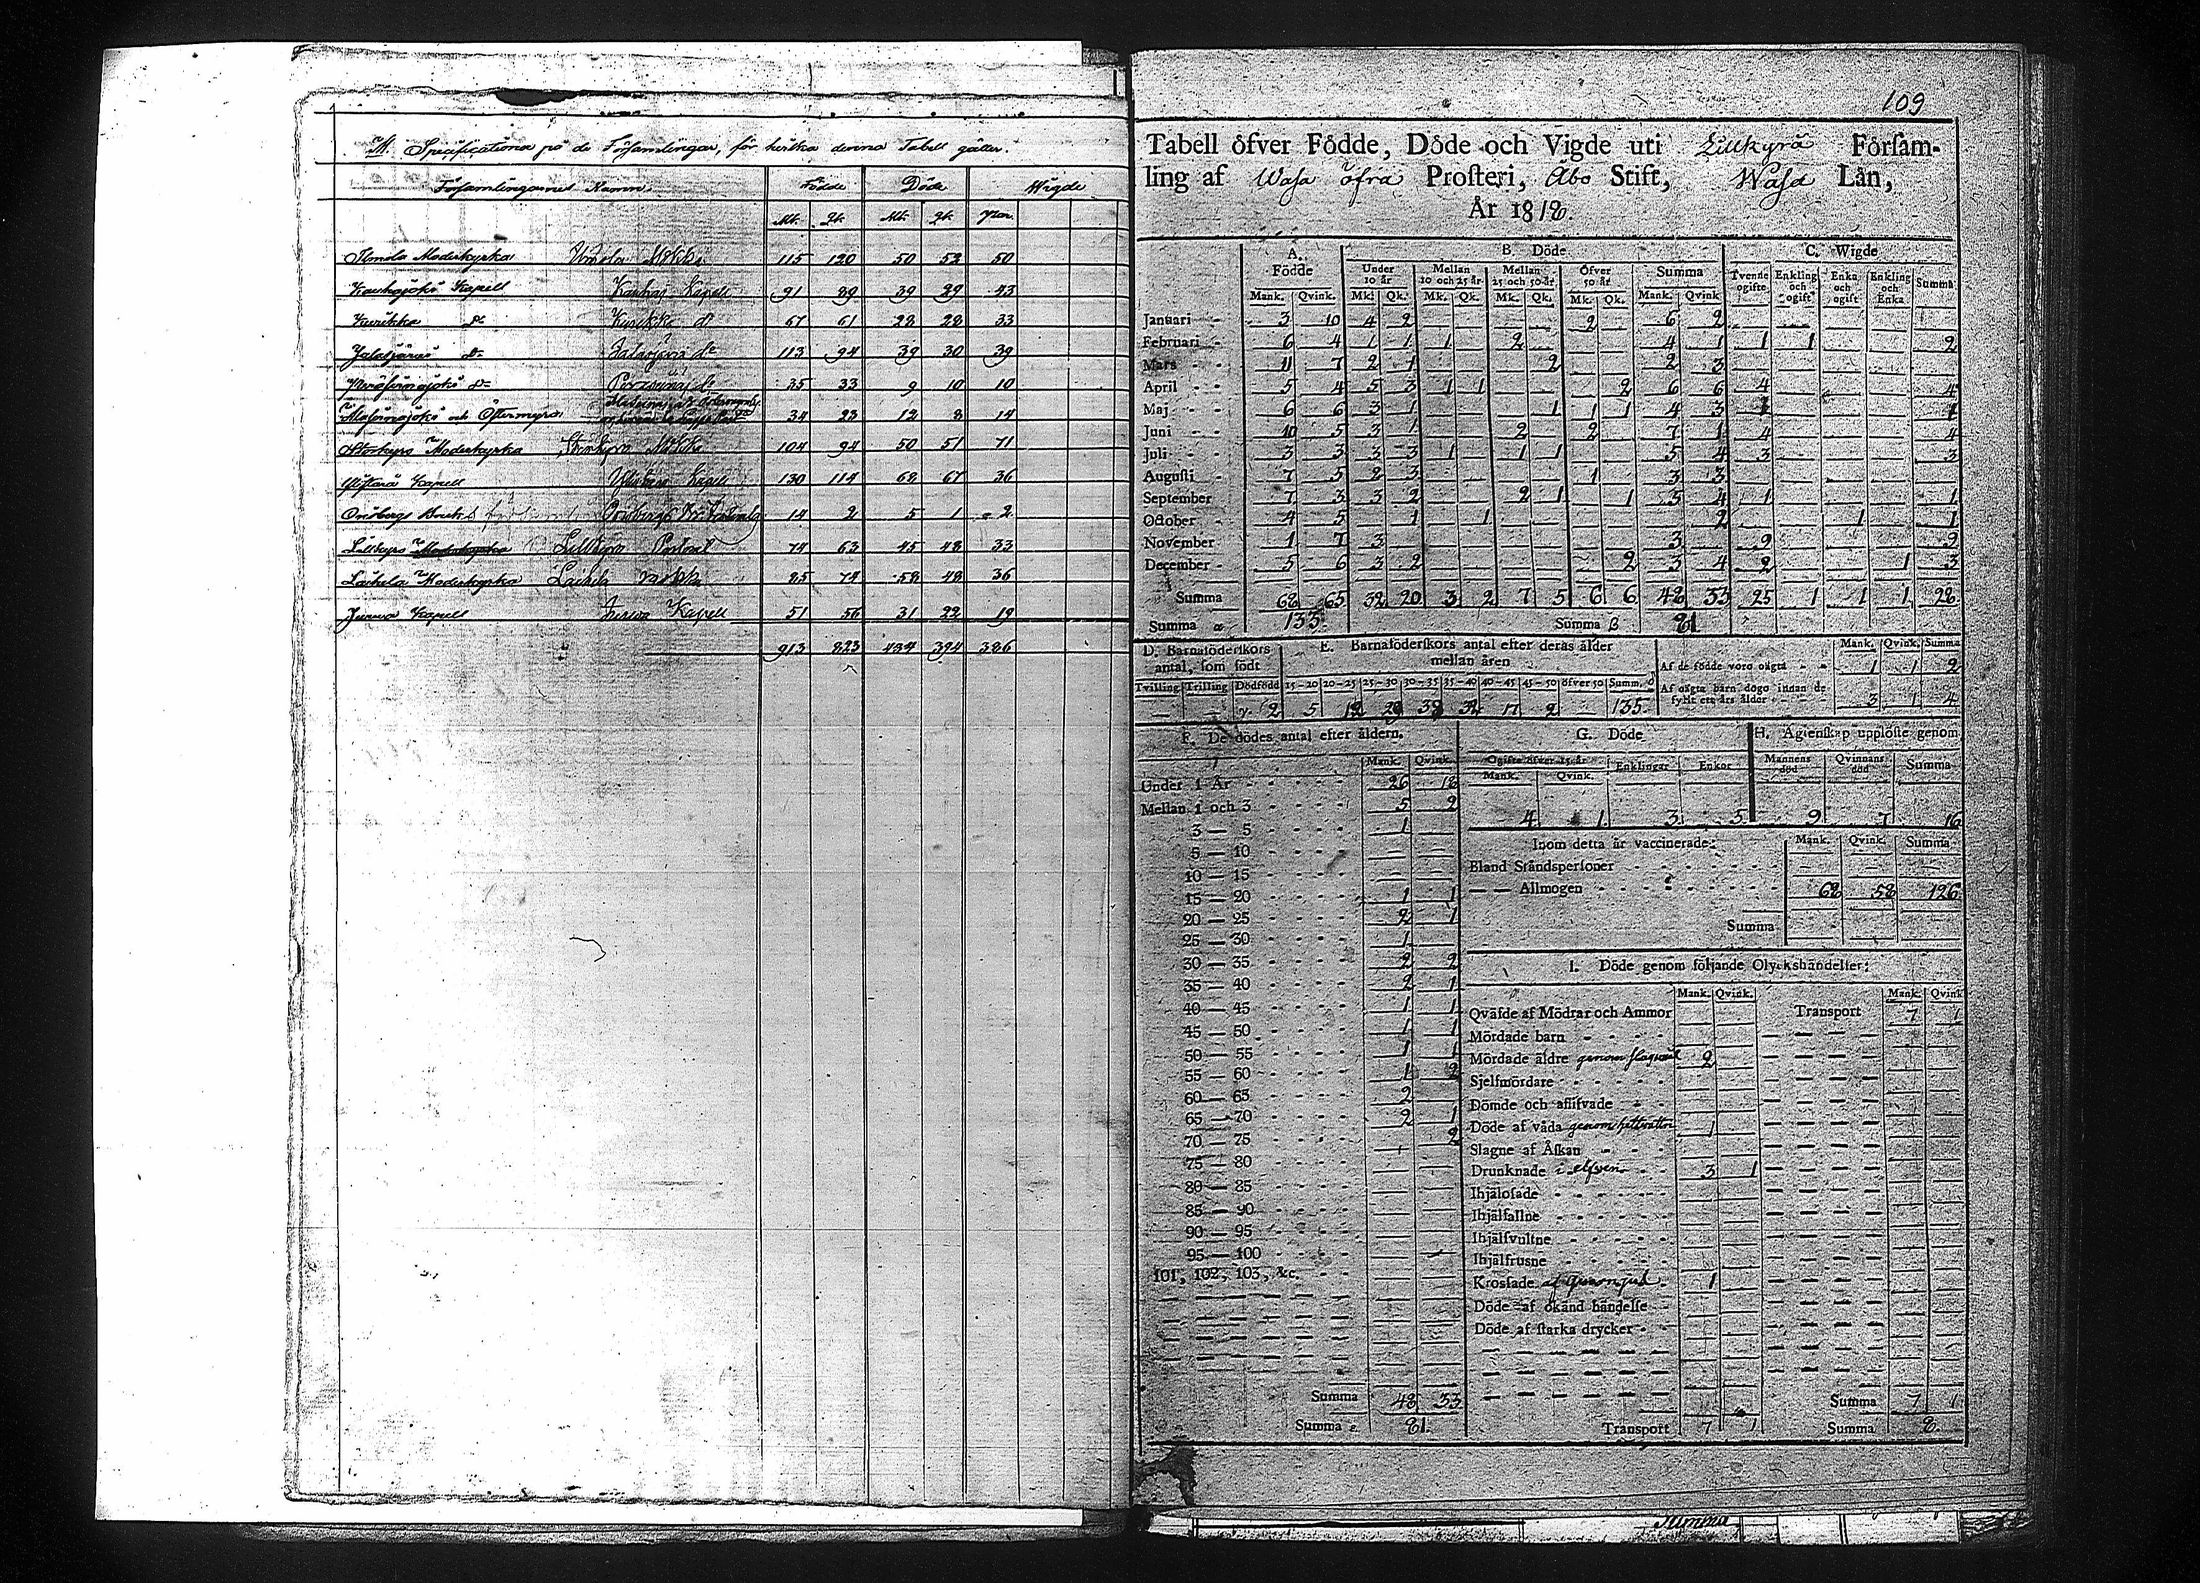 M. Specification på de Församlingar, för hvilka denna Tabell gäller.
Församlingarnes Namn. Födde Döde Wigde
Mk. Qk. Mk. Qk. Par.
Ilmola Moderkyrka 115 120 50 52 50
Kauhajoki Kapell 91 89 39 29 43
Kurikka do 67 61 28 28 33
Jalasjärvi do 113 94 39 30 39
35 33 9 10 10
och Östermyra 34 23 12 8 14
Storkyro Moderkyrka 104 94 50 51 71
Ylistaro Kapell 130 114 68 67 36
Orisbergs Bruks 14 2 5 1 2
Lillkyro Pastorat 74 63 45 48 33
Laihela Moderkyrka 85 74 58 48 36
Jurwa Kapell 51 56 31 22 19
913 823 434 394 386
109
Tabell öfver Födde, Döde och Vigde uti Lillkyrå Församling
af Wasa öfra Prosteri, Åbo Stift, Wasa Län,
År 1818.
A. Födde B. Döde C. Wigde
Under 10 år Mellan 10 och 25 år Mellan 25 och 50 år Öfver 50 år Summa Tvenne ogifte Enkling och ogift Enka och ogift Enkling och Enka Summa
Mank. Qvink. Mk. Qk. Mk. Qk. Mk. Qk. Mk. Qk. Mank. Qvink.
Januari 3 10 4 2 — — — — 2 — 6 2 — — — — —
Februari 6 4 1 1 1 — 2 — — — 4 1 1 1 — — 2
Mars 11 7 2 1 — — — 2 — — 2 3 — — — — —
April 5 4 5 3 1 1 — — — 2 6 6 4 — — — 4
Maj 6 6 3 1 — — — 1 1 1 4 3 1 — — — 1
Juni 10 5 3 1 — — 2 — 2 — 7 1 4 — — — 4
Juli 3 3 3 3 1 — 1 1 — — 5 4 3 — — — 3
Augusti 7 5 2 3 — — — — 1 — 3 3 — — — — —
September 7 3 3 2 — — 2 1 — 1 5 4 1 — — — 1
October 4 5 — 1 — 1 — — — — — 2 — — 1 — 1
November 1 7 3 — — — — — — — 3 — 9 — — — 9
December 5 6 3 2 — — — — — 2 3 4 2 — — 1 3
Summa 68 65 32 20 3 2 7 5 6 6 48 33 25 1 1 1 28
Summa α 133. Summa β 81
D. Barnaföderskors antal, som födt E. Barnaföderskors antal efter deras ålder mellan åren Mank. Qvink. Summa
Tvilling Trilling Dödfödd 15—20 20—25 25—30 30—35 35—40 40—45 45—50 öfver 50 Summ. δ
Af de födde voro oägta 1 1 2
Af oägta barn dogo innan de fyllt ett års ålder 3 1 4
— — 2 5 18 29 32 32 17 2 — 135
F. De dödes antal efter åldern. G. Döde H. Ägtenskap upplöste genom
Mank. Qvink. Ogifte öfver 15 år Enklingar Enkor Mannens död Qvinnans död Summa
Mank. Qvink.
4 1 3 5 9 7 16
Under 1 År 26 18
Mellan 1 och 3 5 2
3 — 5 1 —
5 — 10 — —
10 — 15 — —
15 — 20 1 1
20 — 25 2 1
25 — 30 1 —
30 — 35 2 2
35 — 40 2 1
40 — 45 1 1
45 — 50 1 1
50 — 55 1 1
55 — 60 1 2
60 — 65 2 —
65 — 70 2 1
70 — 75 — 2
75 — 80 — —
80 — 85 — —
85 — 90 — —
90 — 95 — —
95 — 100 — —
101, 102, 103, &c.
Summa 48 33
Summa ε. 81.
Inom detta år vaccinerade: Mank. Qvink. Summa
Bland Ståndspersoner — — —
— — Allmogen 68 58 126
Summa
I. Döde genom följande Olyckshändelser:
Mank. Qvink. Mank. Qvink
Qväfde af Mödrar och Ammor Transport 7 1
Mördade barn
Mördade äldre genom slagsmål 2
Sjelfmördare
Dömde och aflifvade
Döde af våda genom hettvatten 1
Slagne af Åskan
Drunknade i elfven 3 1
Ihjälosade
Ihjälfallne
Ihjälsvultne
Ihjälfrusne
Krossade af 1
Döde af okänd händelse
Döde af starka drycker
Summa 7 1
Transport 7 1 Summa 8.
Summa